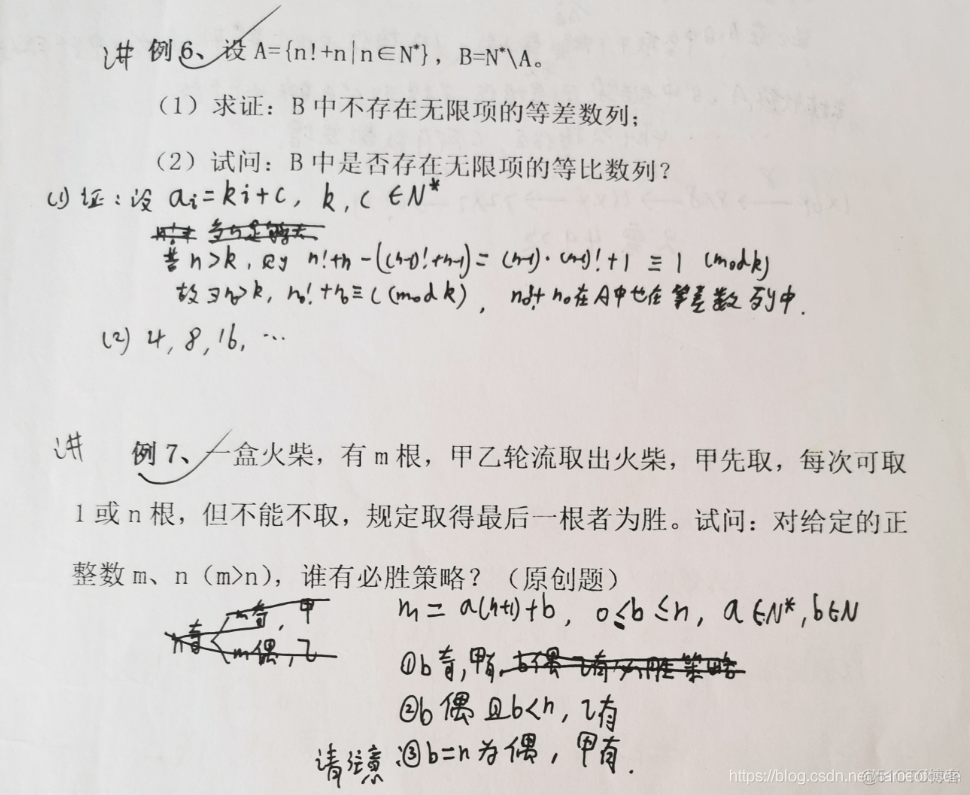 讲 例6、设 A={n!+n|n∈N*}, B=N*\A。
(1) 求证：B 中不存在无限项的等差数列；
(2) 试问：B 中是否存在无限项的等比数列？
(1) 证：设 ai=ki+c, k, c ∈N*
若 n>k, 则 n!+n-((n-1)!+n-1)= (n-1)·(n-1)!+1 ≡ 1 (mod k)
故∃n₀>k, n₀!+n₀≡c(mod k), n₀!+n₀在A中也在等差数列中.
(2) 4, 8, 16, …
讲 例7、一盒火柴，有 m 根，甲乙轮流取出火柴，甲先取，每次可取
1 或 n 根，但不能不取，规定取得最后一根者为胜。试问：对给定的正
整数 m、n（m>n），谁有必胜策略？（原创题）
m= a(n+1)+b, 0≤b≤n, a∈N*, b∈N
n奇 m奇, 甲
m偶, 乙
①b奇, 甲有. b偶 乙有必胜策略
②b偶且b<n, 乙有
请注意: ③b=n为偶, 甲有.
https://blog.csdn.net/